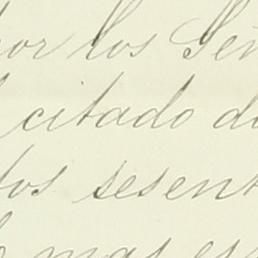 por los Señ
citado d
tos sesent
mas es